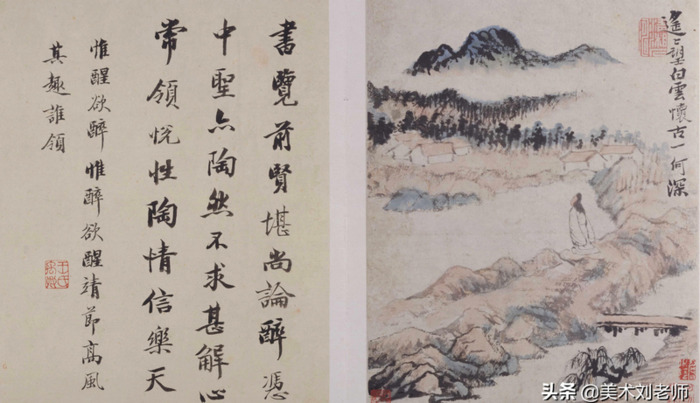 遙〻望白雲懷古一何深
書覽前賢堪尚論醉憑
中聖亦陶然不求甚解心
常領悅性陶情信樂天
惟醒欲醉惟醉欲醒靖節高風
其趣誰領
头条 @美术刘老师